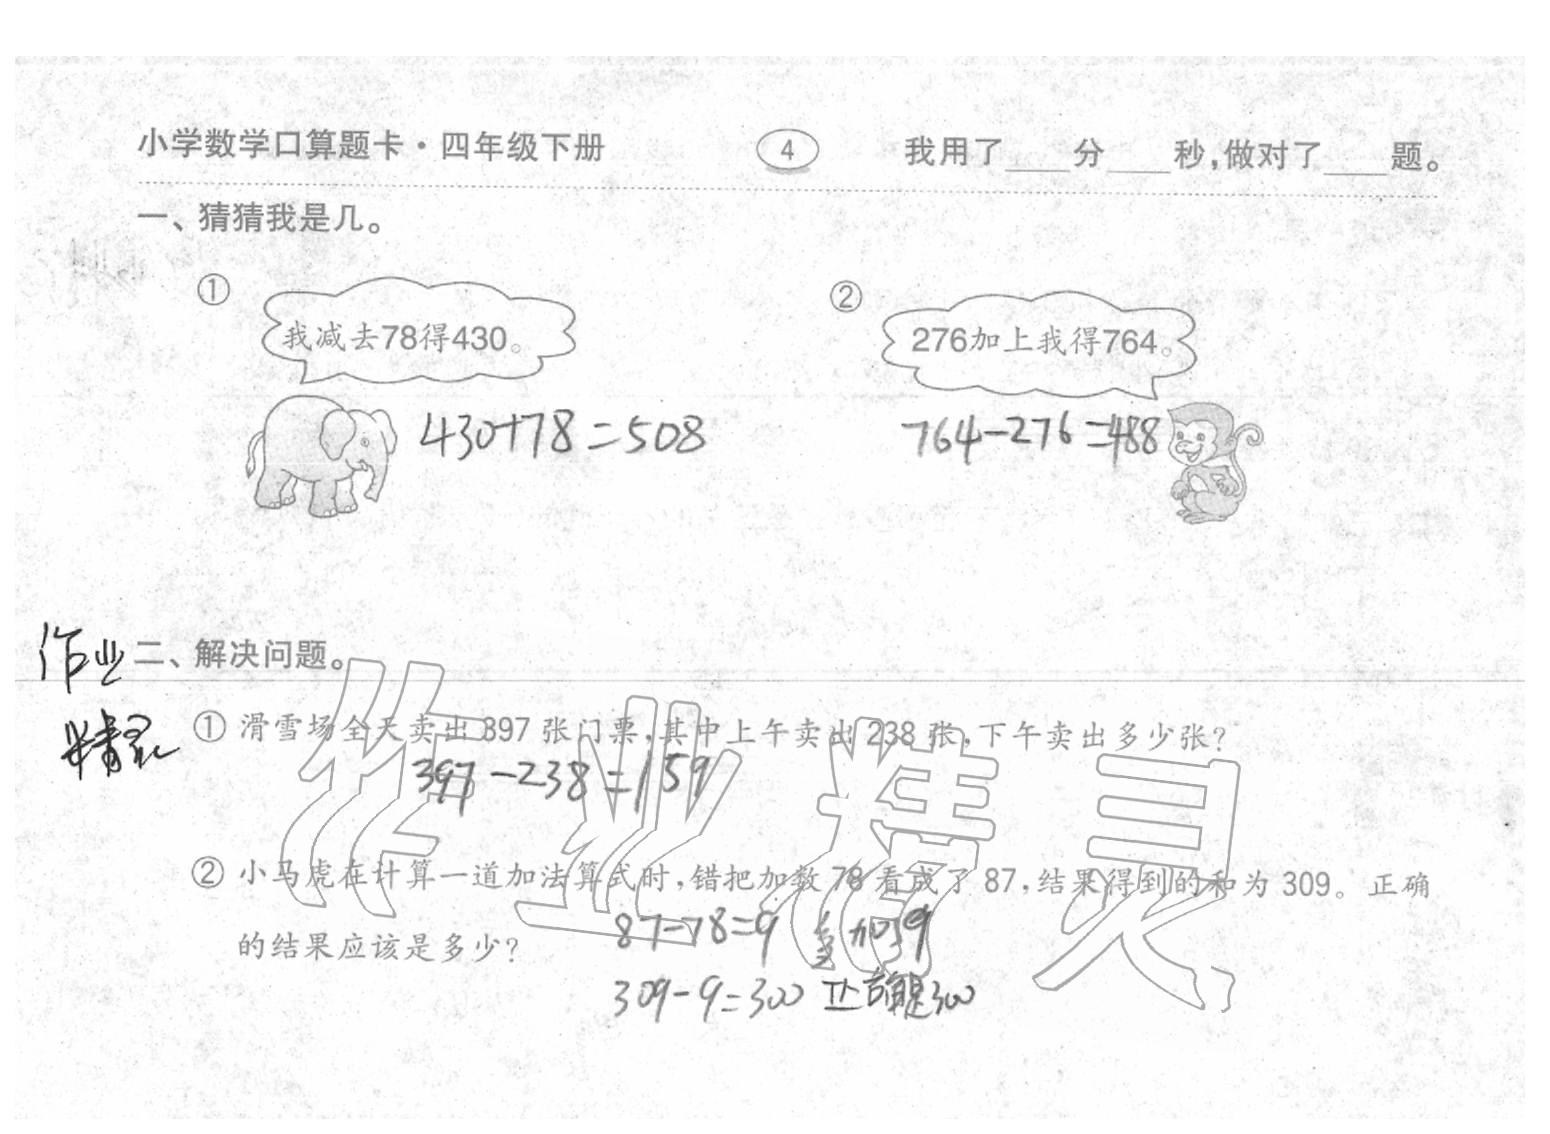 小学数学口算题卡·四年级下册 4 我用了____分____秒,做对了____题。
一、猜猜我是几。
① ②
我减去78得430。 276加上我得764。
430+78=508 764-276=488
作业 二、解决问题。
① 滑雪场全天卖出397张门票,其中上午卖出238张,下午卖出多少张?
精灵
397-238=159
② 小马虎在计算一道加法算式时,错把加数78看成了87,结果得到的和为309。正确
的结果应该是多少?
87-78=9 多加了9
309-9=300 正确是300
作业精灵